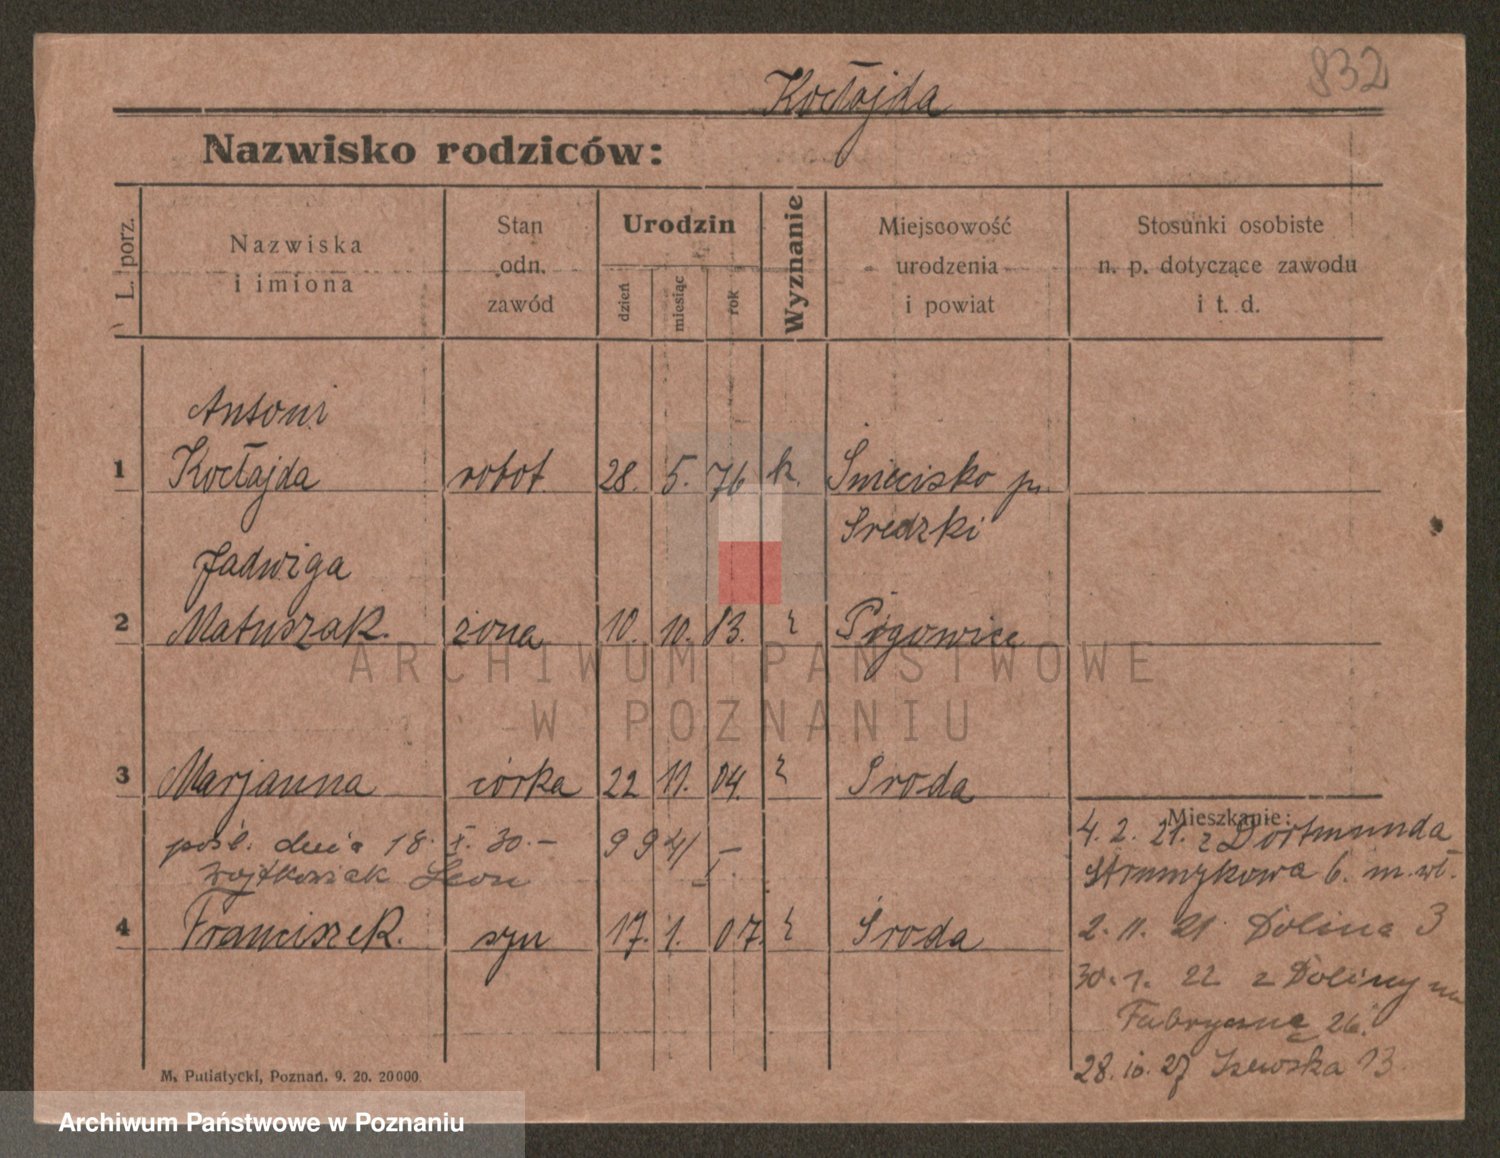 832
Kocłajda
Nazwisko rodziców:
L. porz.
Nazwiska
i imiona
Stan
odn.
zawód
Urodzin
dzień
miesiąc
rok
Wyznanie
Miejscowość
urodzenia
i powiat
Stosunki osobiste
n. p. dotyczące zawodu
i t. d.
Antoni
1 Kocłajda robot. 28. 5. 76 k. Śniecisko p.
Sredzki
Jadwiga
2 Matuszak. żona 10. 10. 83. Pięgowice
3 Marjanna córka 22 11. 04. Środa
pośl. dnia 18. X. 30. — 9 9 41
Wojtkowiak Leon
4 Franciszek. syn 17. 1. 07. Środa
Mieszkanie:
4. 2. 21. z Dortmunda
Strumykowa 6. m. wł.
2. 11. 21 Dolina 3
30. 1. 22 z Doliny na
Fabryczną 26.
28. 10. 27 13.
M. Putiatycki, Poznań. 9. 20. 20000.
ARCHIWUM PAŃSTWOWE
W POZNANIU
Archiwum Państwowe w Poznaniu